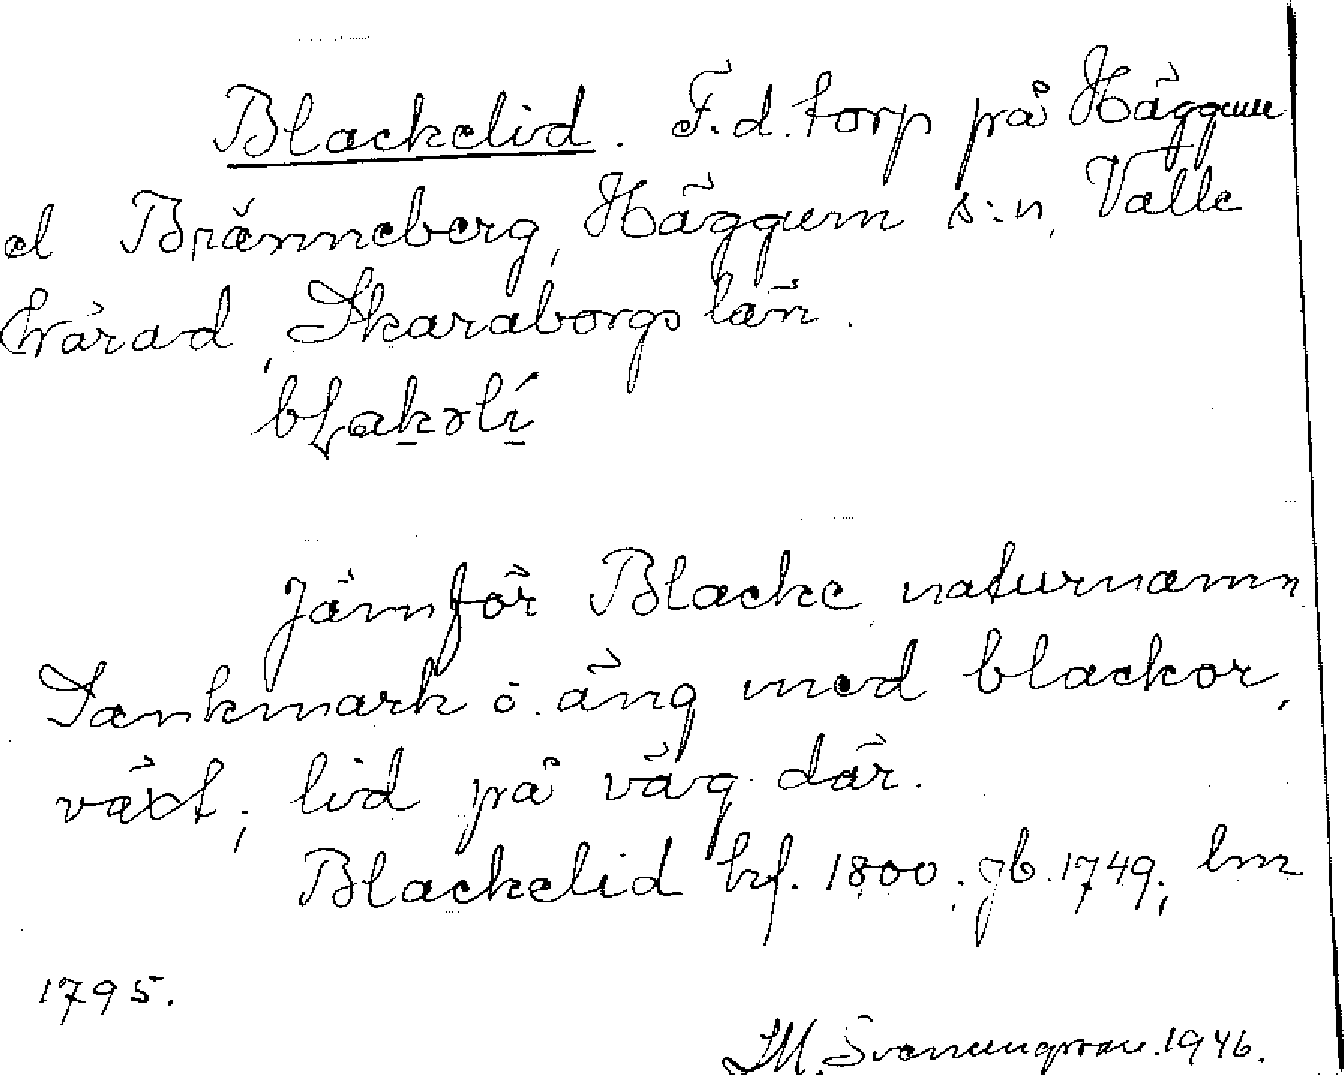 Blackelid. F.d. torp på Häggum
el Bränneberg, Häggum s:n, Valle
härad, Skaraborgs län.
bLakəlí
Jämför Blacke, naturnamn
Sankmark o. äng med blackor,
växt; lid på väg där.
Blackelid hf. 1800; jb. 1749; lm
1795.
1946.